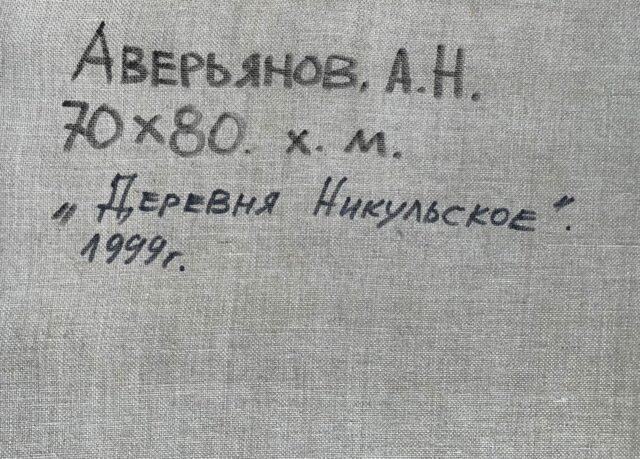 Аверьянов. А.Н.
70х80. х. м.
„Деревня Никульское".
1999г.